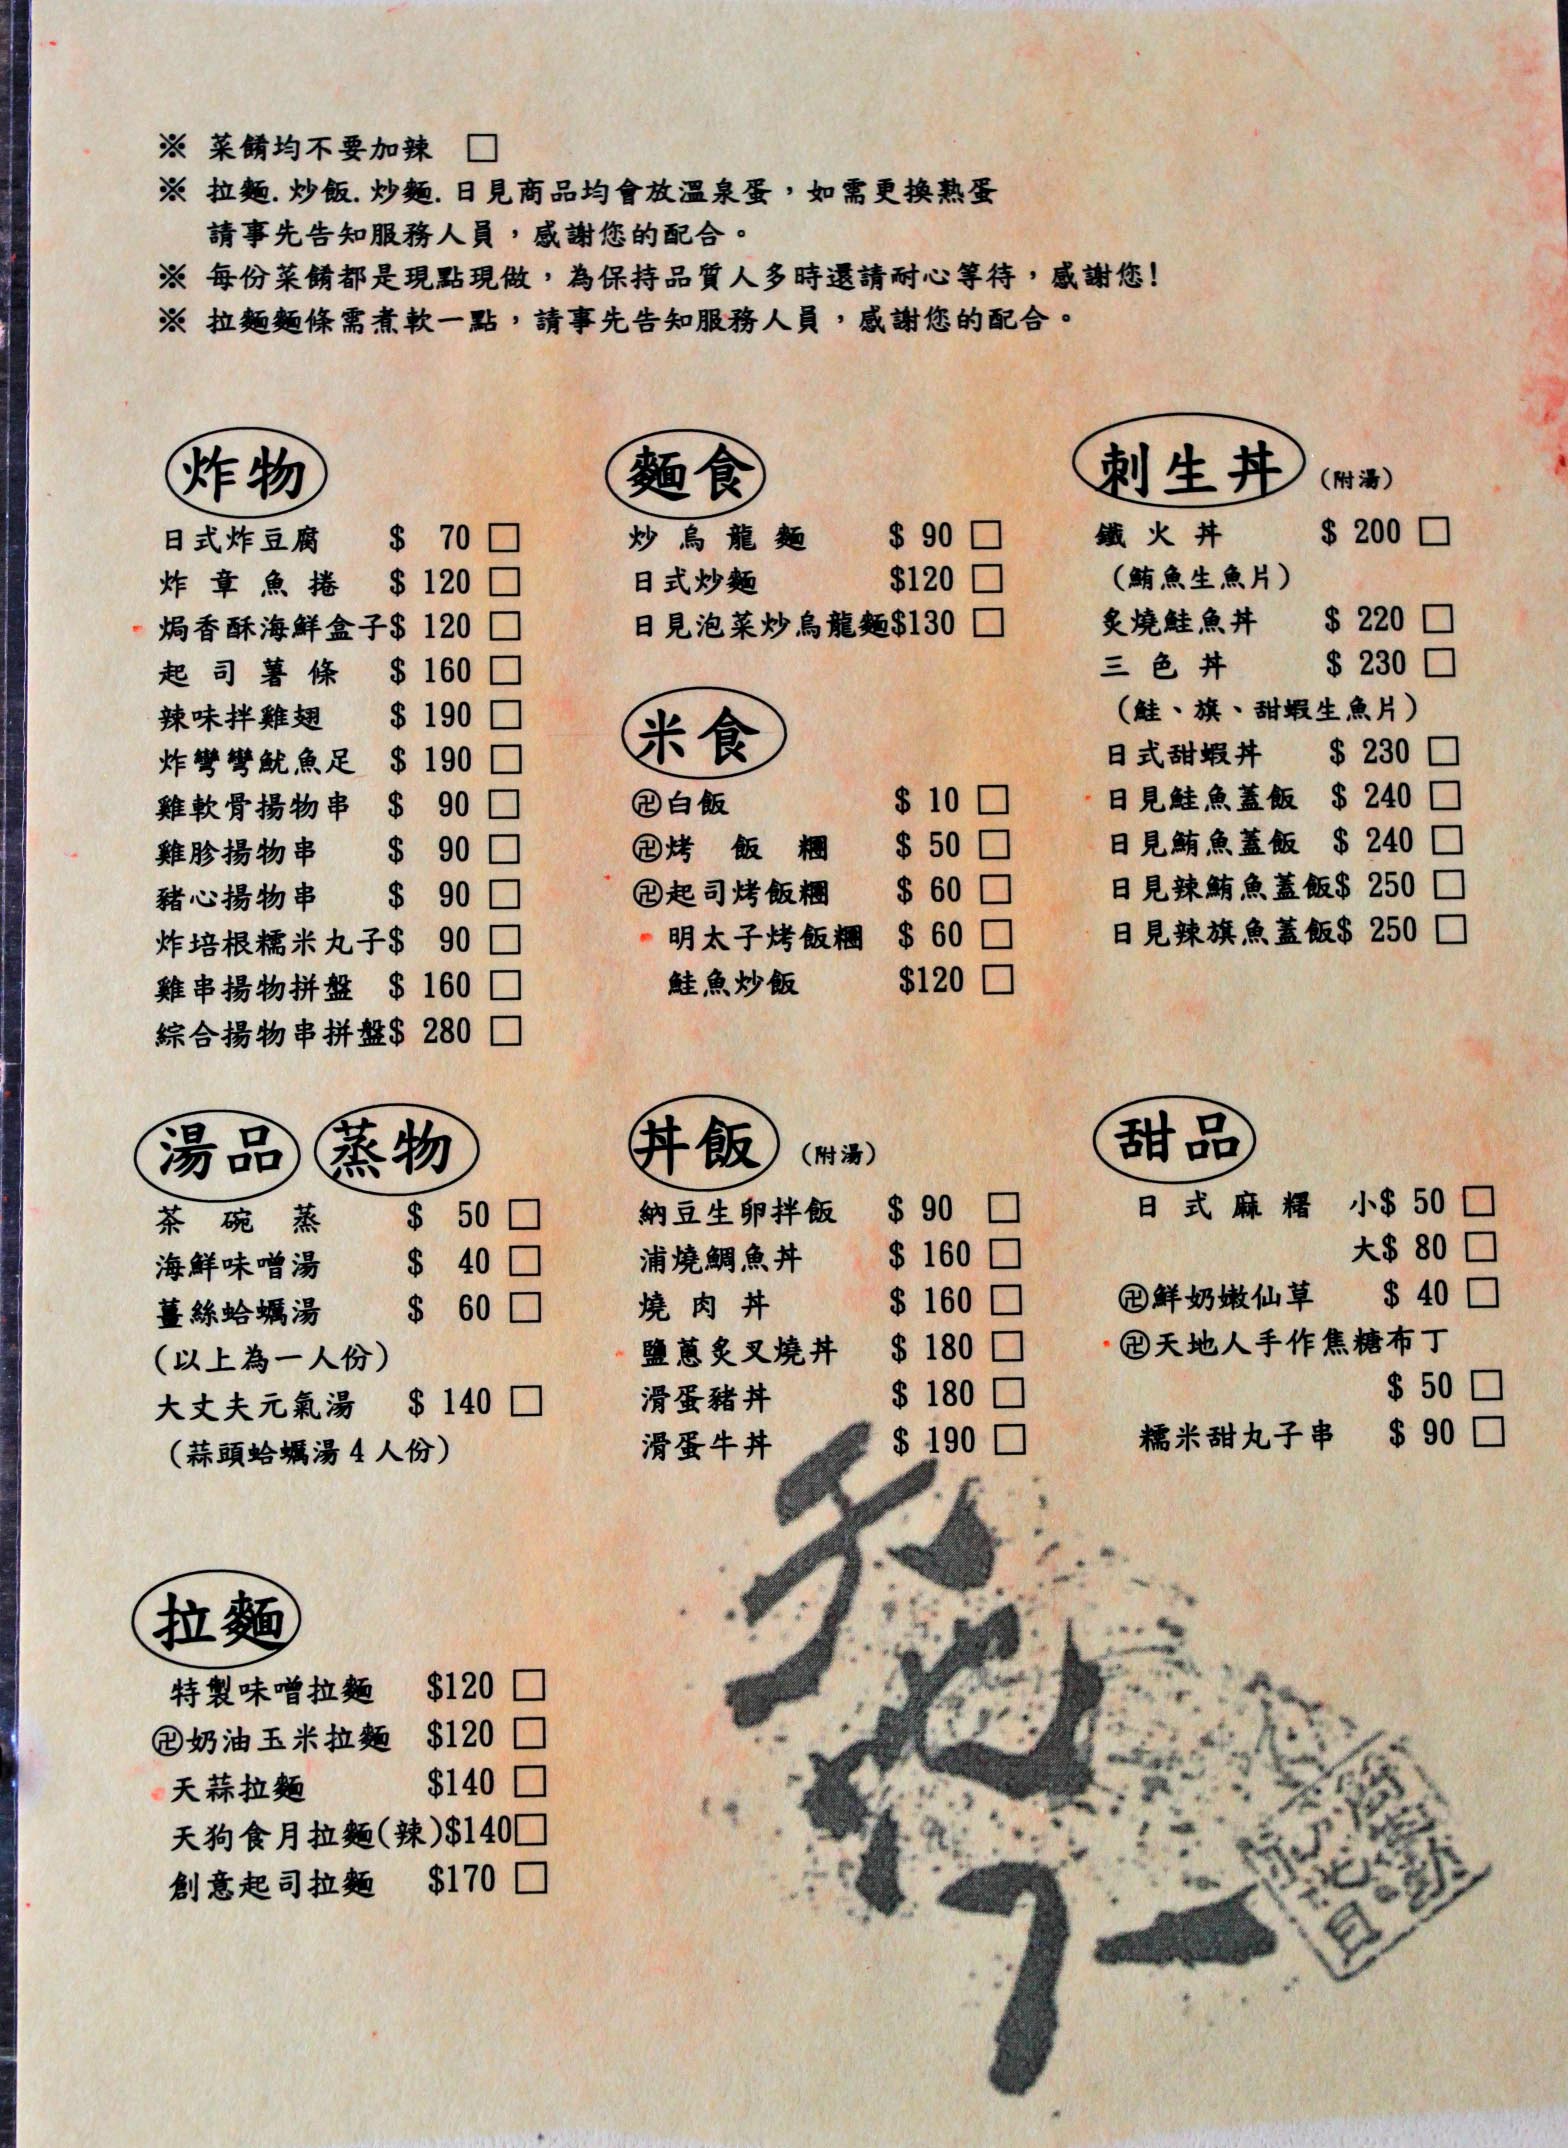 ※ 菜餚均不要加辣 □
※ 拉麵.炒飯.炒麵.日見商品均會放溫泉蛋，如需更換熟蛋
請事先告知服務人員，感謝您的配合。
※ 每份菜餚都是現點現做，為保持品質人多時還請耐心等待，感謝您!
※ 拉麵麵條需煮軟一點，請事先告知服務人員，感謝您的配合。
炸物
日式炸豆腐 $ 70 □
炸章魚捲 $ 120 □
焗香酥海鮮盒子$ 120 □
起司薯條 $ 160 □
辣味拌雞翅 $ 190 □
炸彎彎魷魚足 $ 190 □
雞軟骨揚物串 $ 90 □
雞胗揚物串 $ 90 □
豬心揚物串 $ 90 □
炸培根糯米丸子$ 90 □
雞串揚物拼盤 $ 160 □
綜合揚物串拼盤$ 280 □
麵食
炒烏龍麵 $ 90 □
日式炒麵 $120 □
日見泡菜炒烏龍麵$130 □
米食
卍白飯 $ 10 □
卍烤飯糰 $ 50 □
卍起司烤飯糰 $ 60 □
明太子烤飯糰 $ 60 □
鮭魚炒飯 $120 □
刺生丼 (附湯)
鐵火丼 $ 200 □
(鮪魚生魚片)
炙燒鮭魚丼 $ 220 □
三色丼 $ 230 □
(鮭、旗、甜蝦生魚片)
日式甜蝦丼 $ 230 □
日見鮭魚蓋飯 $ 240 □
日見鮪魚蓋飯 $ 240 □
日見辣鮪魚蓋飯$ 250 □
日見辣旗魚蓋飯$ 250 □
湯品 蒸物
茶碗蒸 $ 50 □
海鮮味噌湯 $ 40 □
薑絲蛤蠣湯 $ 60 □
(以上為一人份)
大丈夫元氣湯 $ 140 □
(蒜頭蛤蠣湯4人份)
丼飯 (附湯)
納豆生卵拌飯 $ 90 □
浦燒鯛魚丼 $ 160 □
燒肉丼 $ 160 □
鹽蔥炙叉燒丼 $ 180 □
滑蛋豬丼 $ 180 □
滑蛋牛丼 $ 190 □
甜品
日式麻糬 小$ 50 □
大$ 80 □
卍鮮奶嫩仙草 $ 40 □
卍天地人手作焦糖布丁
$ 50 □
糯米甜丸子串 $ 90 □
拉麵
特製味噌拉麵 $120 □
卍奶油玉米拉麵 $120 □
天蒜拉麵 $140 □
天狗食月拉麵(辣)$140□
創意起司拉麵 $170 □